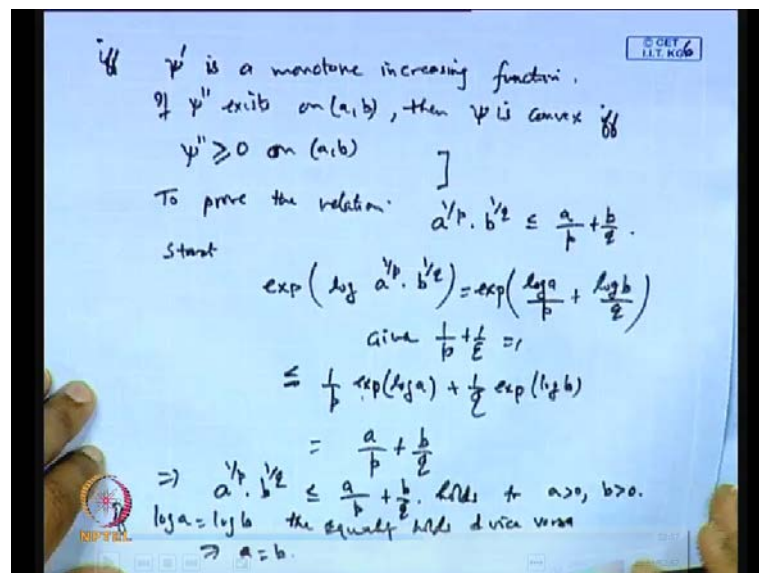 © CET
I.I.T. KGP
6
iff ψ' is a monotone increasing function.
If ψ'' exists on (a,b), then ψ is convex iff
ψ'' ≥ 0 on (a,b) ]
To prove the relation. a^{1/p} . b^{1/q} ≤ a/p + b/q .
Start
exp ( log a^{1/p} . b^{1/q} ) = exp ( log a/p + log b/q )
Given 1/p + 1/q = 1
≤ 1/p exp(log a) + 1/q exp (log b)
= a/p + b/q
⇒ a^{1/p} . b^{1/q} ≤ a/p + b/q . holds for a>0, b>0.
log a = log b the equality holds & vice versa
⇒ a = b.
NPTEL